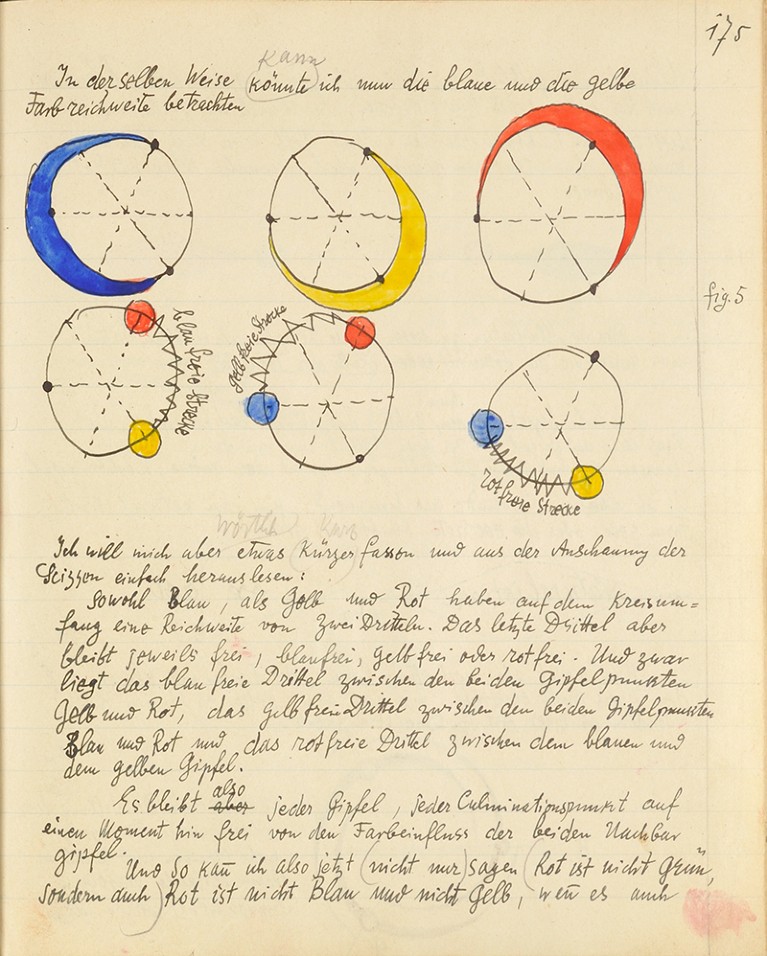 175
kann
In derselben Weise könnte ich nun die blaue und die gelbe
Farbreichweite betrachten
fig. 5
blaufreie Strecke
gelbfreie Strecke
rotfreie Strecke
wörtlich kurz
Ich will mich aber etwas kürzer fassen und aus der Anschauung der
Scizzen einfach herauslesen:
Sowohl Blau, als Gelb und Rot haben auf dem Kreisum=
fang eine Reichweite von zwei Dritteln. Das letzte Drittel aber
bleibt jeweils frei, blaufrei, gelbfrei oder rotfrei. Und zwar
liegt das blaufreie Drittel zwischen den beiden Gipfelpunkten
Gelb und Rot, das gelbfreie Drittel zwischen den beiden Gipfelpunkten
Blau und Rot und das rotfreie Drittel zwischen dem blauen und
dem gelben Gipfel.
also
Es bleibt aber jeder Gipfel, jeder Culminationspunkt auf
einen Moment hin frei von den Farbeinfluss der beiden Nachbar
gipfel.
Und so kann ich also jetzt (nicht nur) sagen (Rot ist nicht Grün,
sondern auch) Rot ist nicht Blau und nicht Gelb, wenn es auch